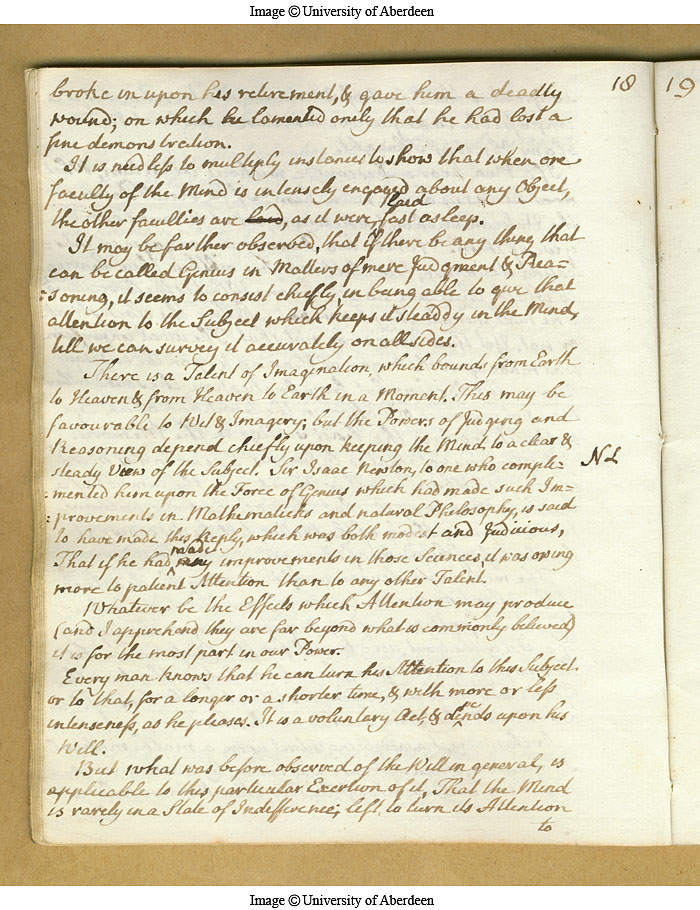 Image © University of Aberdeen
18
19
broke in upon his retirement, & gave him a deadly
wound; on which he lamented onely that he had lost a
fine demonstration.
It is needless to multiply instances to show that when one
faculty of the Mind is intensely engaged about any Object,
laid
the other faculties are laid, as it were, fast asleep.
It may be farther observed, that if there be any thing that
can be called Genius in Matters of mere Judgment & Rea=
=soning, it seems to consist chiefly in being able to give that
attention to the Subject which keeps it steaddy in the Mind,
till we can survey it accurately on all sides.
There is a Talent of Imagination, which bounds from Earth
to Heaven & from Heaven to Earth in a Moment. This may be
favourable to Wit & Imagery; but the Powers of Judging and
Reasoning depend chiefly upon keeping the Mind to a clear &
steady View of the Subject. Sir Isaac Newton, to one who compli=
NL
=mented him upon the Force of Genius which had made such Im=
=provements in Mathematicks and natural Philosophy, is said
to have made this Reply, which was both modest and Judicious,
made
That if he had any improvements in those Sciences, it was owing
more to patient Attention than to any other Talent.
Whatever be the Effects which Attention may produce
(and I apprehend they are far beyond what is commonly believed)
it is for the most part in our Power.
Every man knows that he can turn his Attention to this Subject
or to that, for a longer or a shorter time, & with more or less
pe
intenseness, as he pleases. It is a voluntary Act, & dends upon his
Will.
But what was before observed of the Will in general, is
applicable to this particular Exertion of it, That the Mind
is rarely in a State of Indifference; left to turn its Attention
to
Image © University of Aberdeen